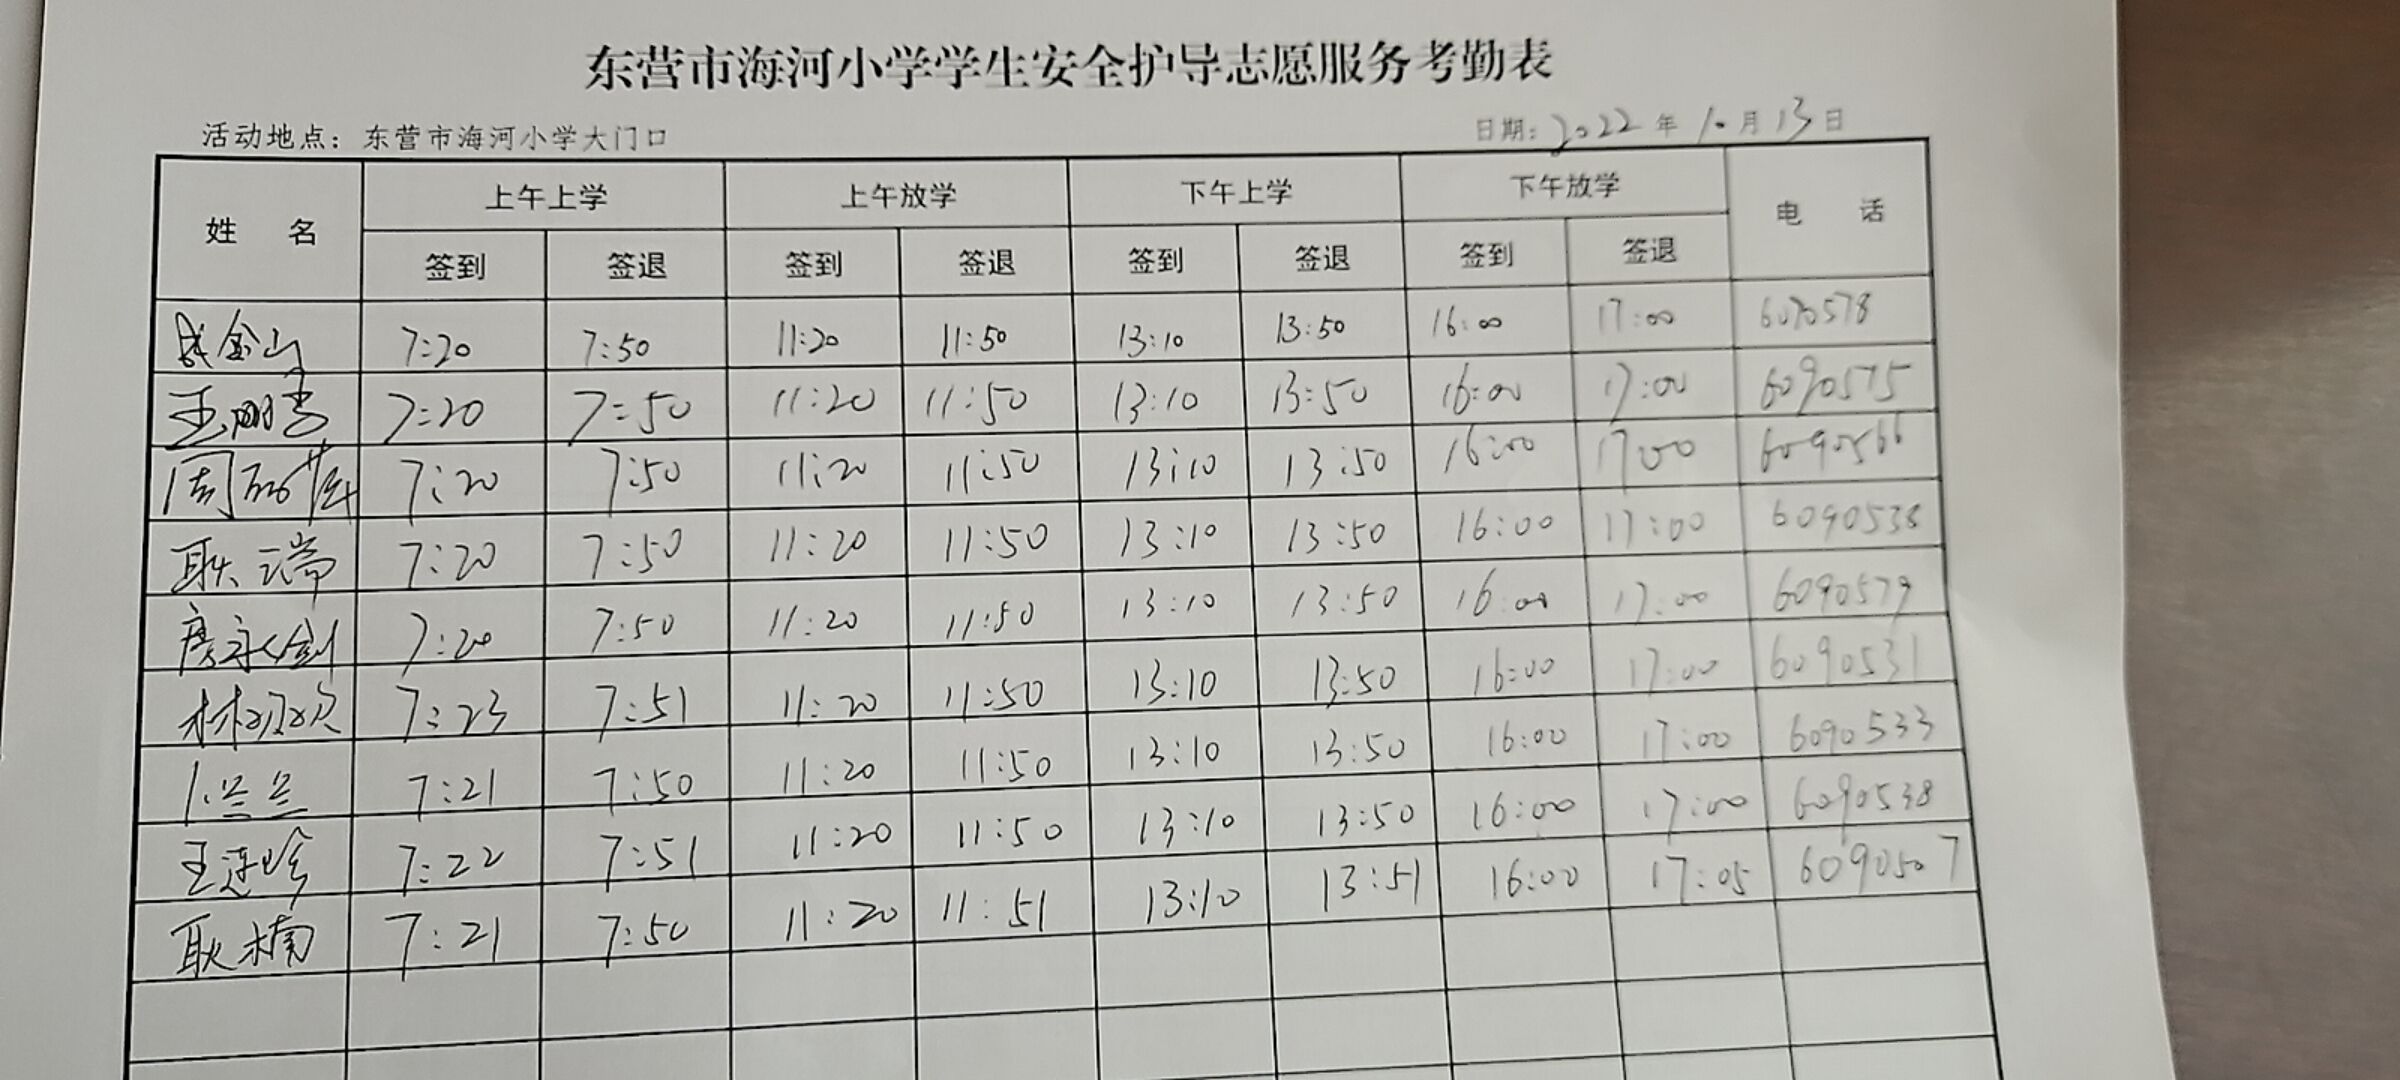 东营市海河小学学生安全护导志愿服务考勤表
活动地点：东营市海河小学大门口 日期：2022年10月13日
姓 名 上午上学 上午放学 下午上学 下午放学 电 话
签到 签退 签到 签退 签到 签退 签到 签退
金山 7:20 7:50 11:20 11:50 13:10 13:50 16:00 17:00 6090578
王 7:20 7:50 11:20 11:50 13:10 13:50 16:00 17:00 6090575
周 7:20 7:50 11:20 11:50 13:10 13:50 16:00 17:00 6090566
耿瑞 7:20 7:50 11:20 11:50 13:10 13:50 16:00 17:00 6090538
房永剑 7:20 7:50 11:20 11:50 13:10 13:50 16:00 17:00 6090579
林欢欢 7:23 7:51 11:20 11:50 13:10 13:50 16:00 17:00 6090531
卜兰兰 7:21 7:50 11:20 11:50 13:10 13:50 16:00 17:00 6090533
王莲珍 7:22 7:51 11:20 11:50 13:10 13:50 16:00 17:00 6090538
耿楠 7:21 7:50 11:20 11:51 13:10 13:51 16:00 17:05 6090507